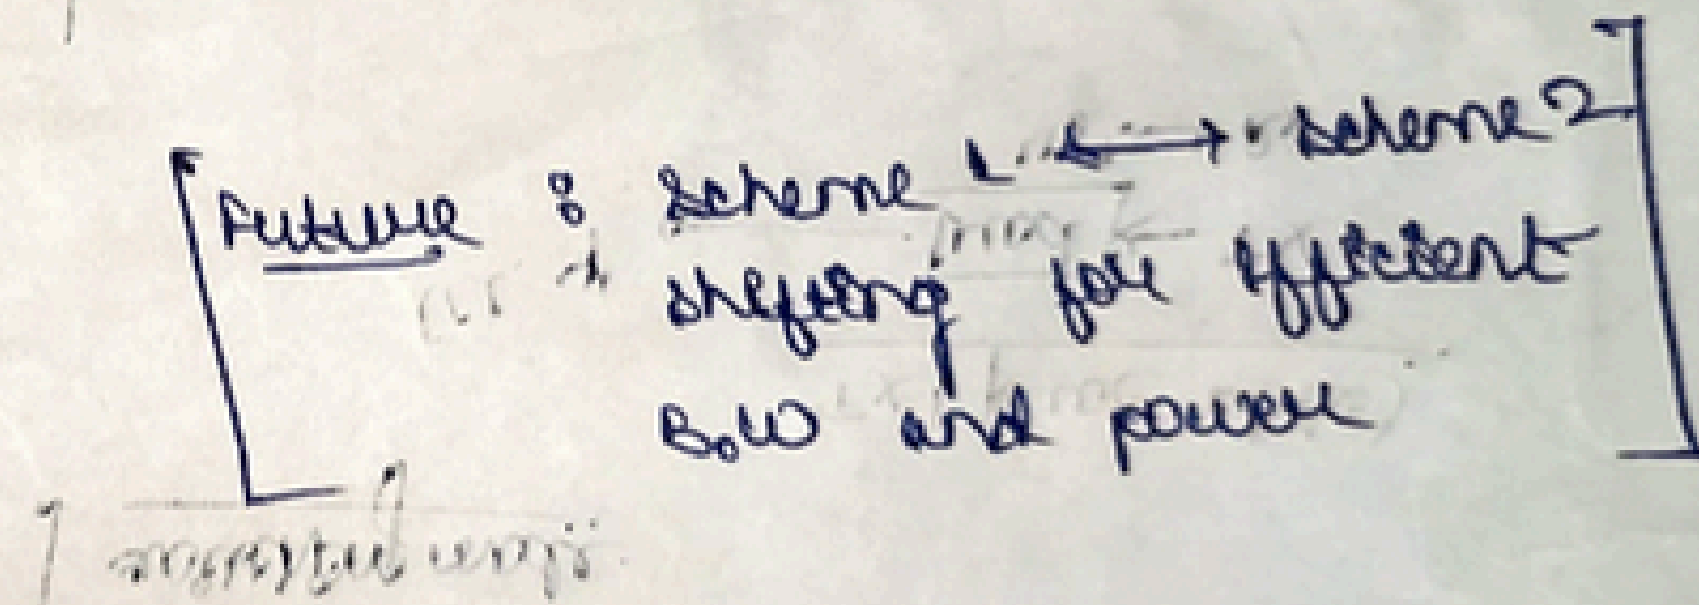 [Future : Scheme 1 ⟷ Scheme 2
shifting for efficient
B.W and power]